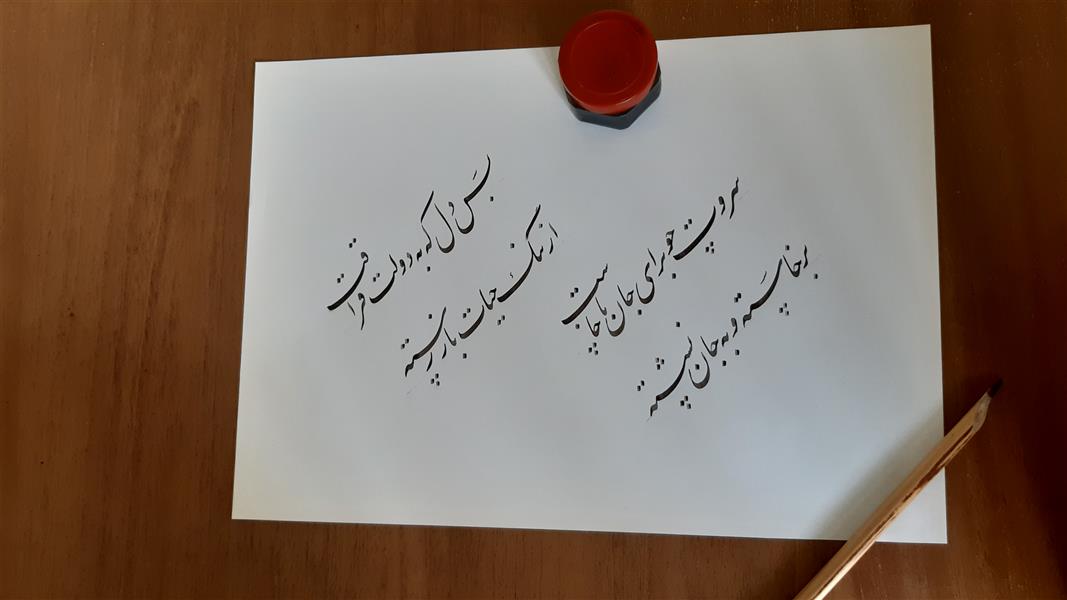 سروت چو برای جان ما خاست
برخاسته و به جان نشسته
بَس دل که به دولت فراقت
از ننگ حیات باز رسته